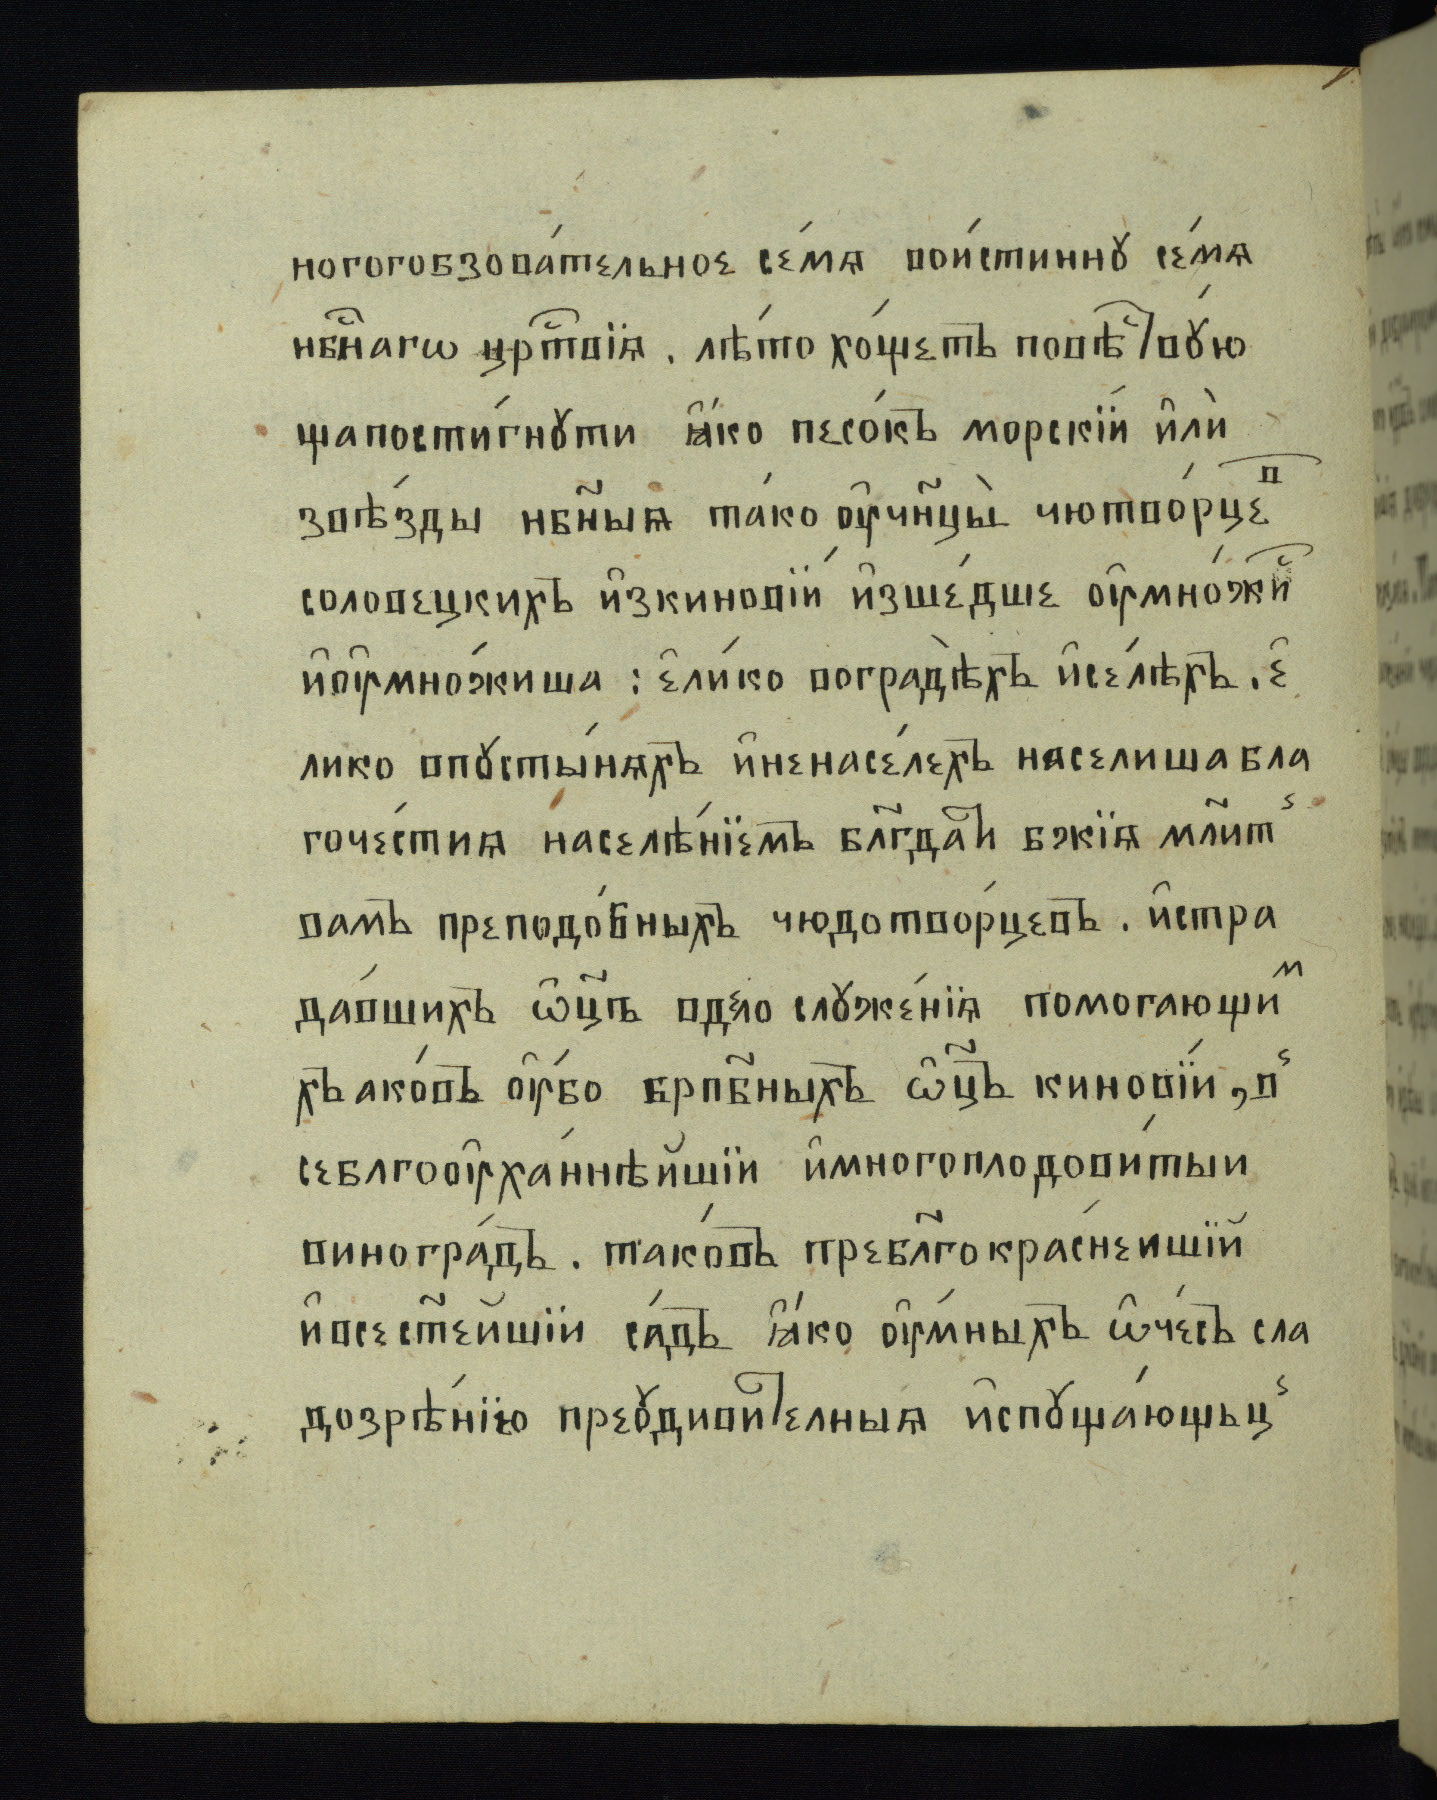 ногогобзова́тельное се́мѧ вои́стиннꙋ се́мѧ
нб҇нагѡ црⷭ҇твїѧ . лѣ́то хо́щетъ повѣⷭ҇твꙋ́ю
щапости́гнꙋти ꙗ҆́ко песо́къ морскі́й и҆лѝ
звѣ́зды нб҃ныѧ та́ко ѹ҆чн҃цы̀ чютво́рцеⷡ҇
соловецкихъ и҆зкинові́й и҆зше́дше ѹ҆мно́жиⷭ҇
и҆ѹ҆мно́жиша : є҆ли́ко воградѣ̀хъ и҆се́лѣхъ . є҆
лико впꙋсты́нѧхъ и҆ненасе́лехъ населиша бла
гоче́стиѧ населѣ́нїемъ блг҃даⷮи бж҃їѧ мл҃ит
вамъ преподо́бныхъ чюдотво́рцевъ . и҆стра
да́вшихъ ѻ҆ц҃ъ вдѣло слꙋже́нїѧ помогающиⷨ
хъ ако́въ ѹ҆́бо врпб҃ныхъ ѻ҆ц҃ъ кинові́и , в
себлгоѹ҆ха́ннѣйшїи и҆многоплодови́тыи
виногра́дъ . тако́въ пребл҃гокра́снеишїй
и҆всест҃ейшїи са́дъ ꙗ҆́ко ѹ҆́мныхъ ѻ҆че́съ сла
дозрѣ́нїю преꙋдивиⷮелныѧ и҆спꙋща́ющьц